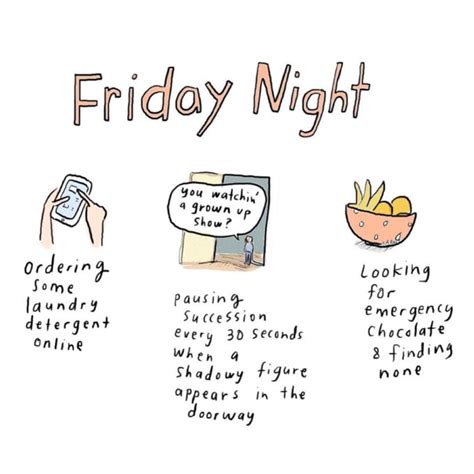 Friday Night
ordering
some
laundry
detergent
online
you watchin'
a grown up
show?
pausing
Succession
every 30 seconds
when a
shadowy figure
appears in the
doorway
Looking
for
emergency
chocolate
& finding
none